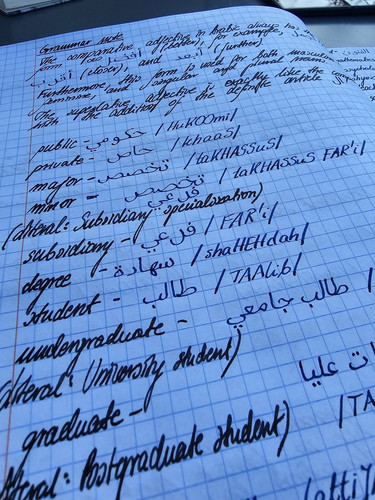 Grammar Note
The comparative adjective in Arabic always has the
form , for example, أفضل (better), أبعد (further)
أقرب (closer), and
Furthermore, this form is used for both masculine
feminine, and singular and plural nouns
The superlative adjective is exactly like the comparative
with the addition of the definite article
public - حكومي /HuKOOmi/
private - خاص /khaaS/
major - تخصص /taKHASSuS/
minor - تخصص فرعي /taKHASSuS FAR'i/
(literal: Subsidiary specialization)
subsidiary - فرعي /FAR'i/
degree - شهادة /shaHEHdah/
student - طالب /TAAlib/
undergraduate - طالب جامعي /
(literal: University student)
graduate - ات عليا
(literal: Postgraduate student) /TA